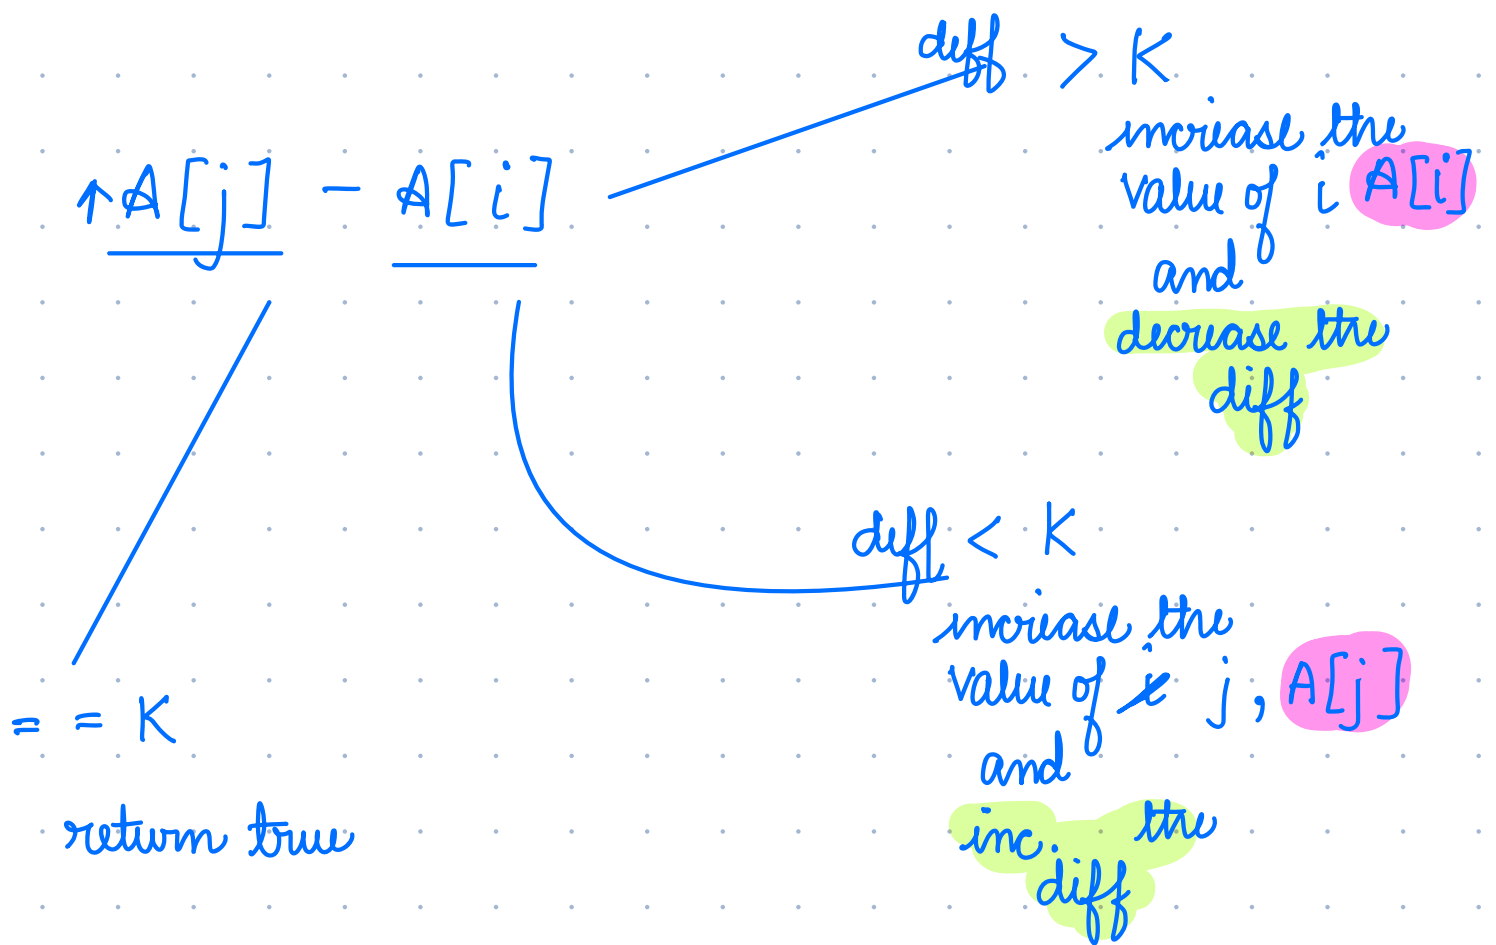 diff > K
increase the
value of i A[i]
and
decrease the
diff
↑A[j] - A[i]
diff < K
increase the
value of j, A[j]
and
inc. the
diff
= = K
return true